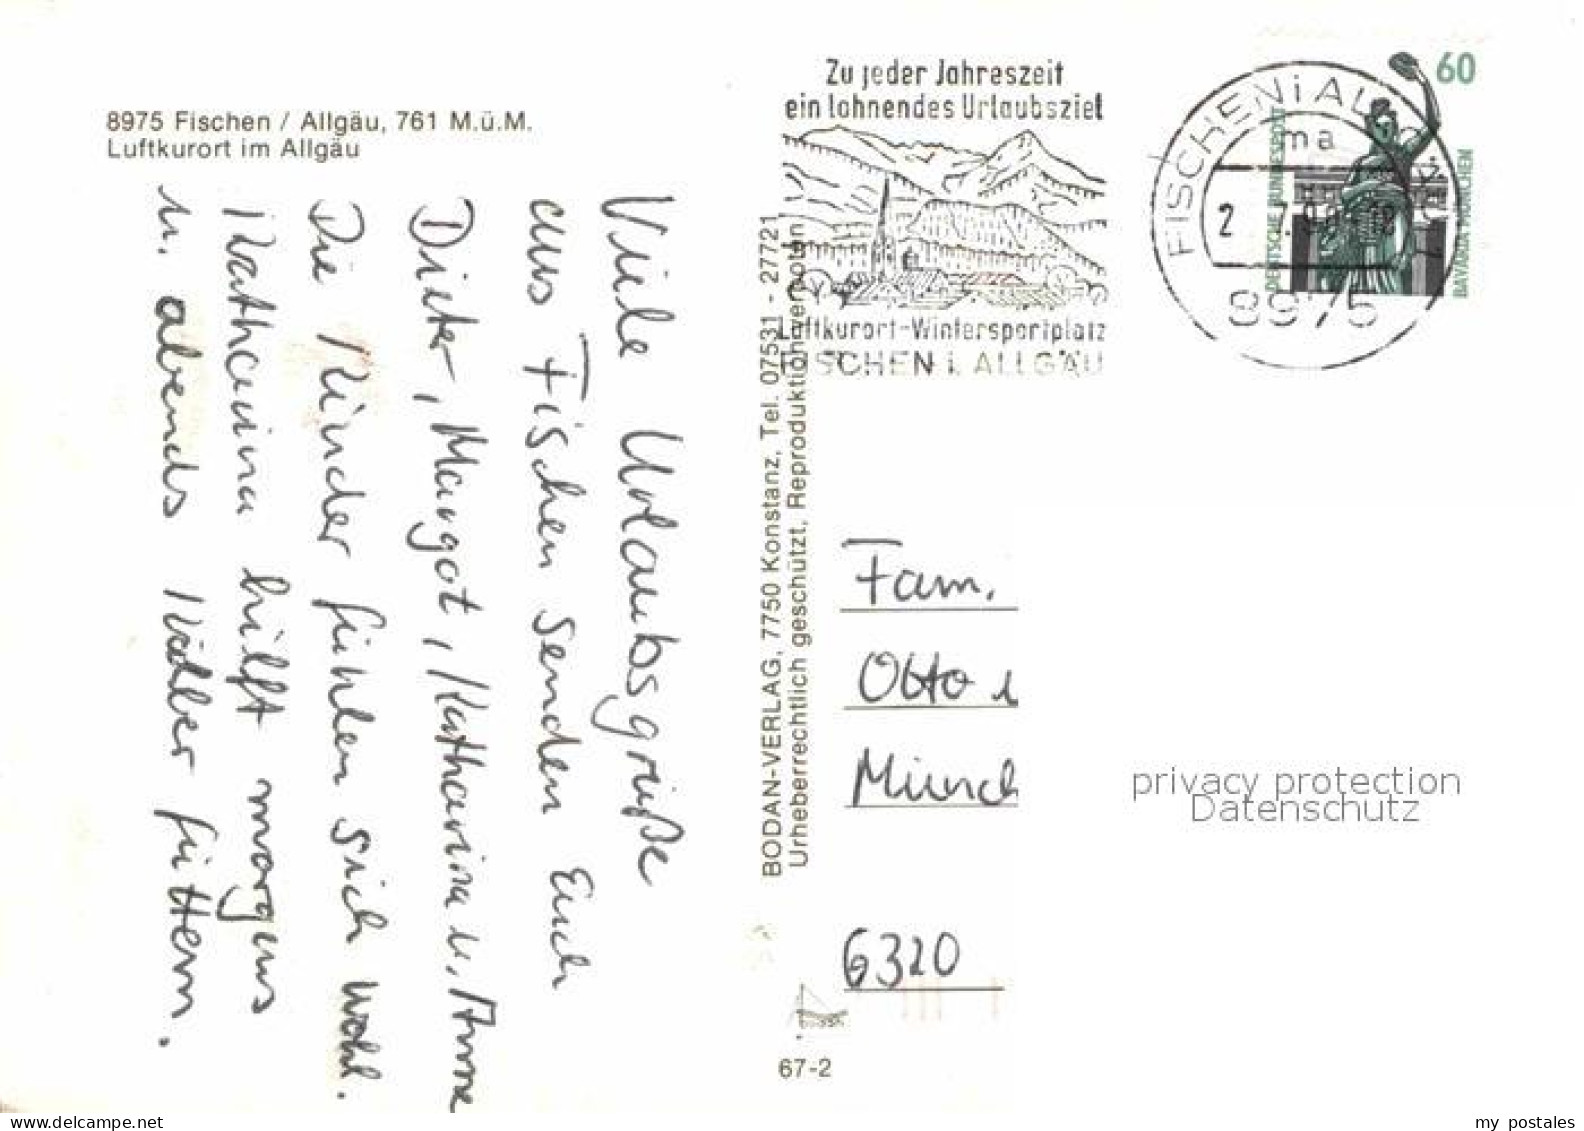 8975 Fischen / Allgäu, 761 M.ü.M.
Luftkurort im Allgäu
Viele Urlaubsgrüße
aus Fischen senden Euch
Dieter, Margot, Katharina u. Anne
Die Kinder fühlen sich wohl.
Katharina hilft morgens
u. abends Kälber füttern.
BODAN-VERLAG, 7750 Konstanz, Tel. 07531 - 27721
Urheberrechtlich geschützt, Reproduktion verboten
Zu jeder Jahreszeit
ein lohnendes Urlaubsziel
Luftkurort-Wintersportplatz
FISCHEN i. ALLGÄU
FISCHEN i ALLGÄU
ma
8975
60
DEUTSCHE BUNDESPOST
BAVARIA MÜNCHEN
Fam.
Otto
Münch
6320
67-2
privacy protection
Datenschutz
www.delcampe.net
my_postales